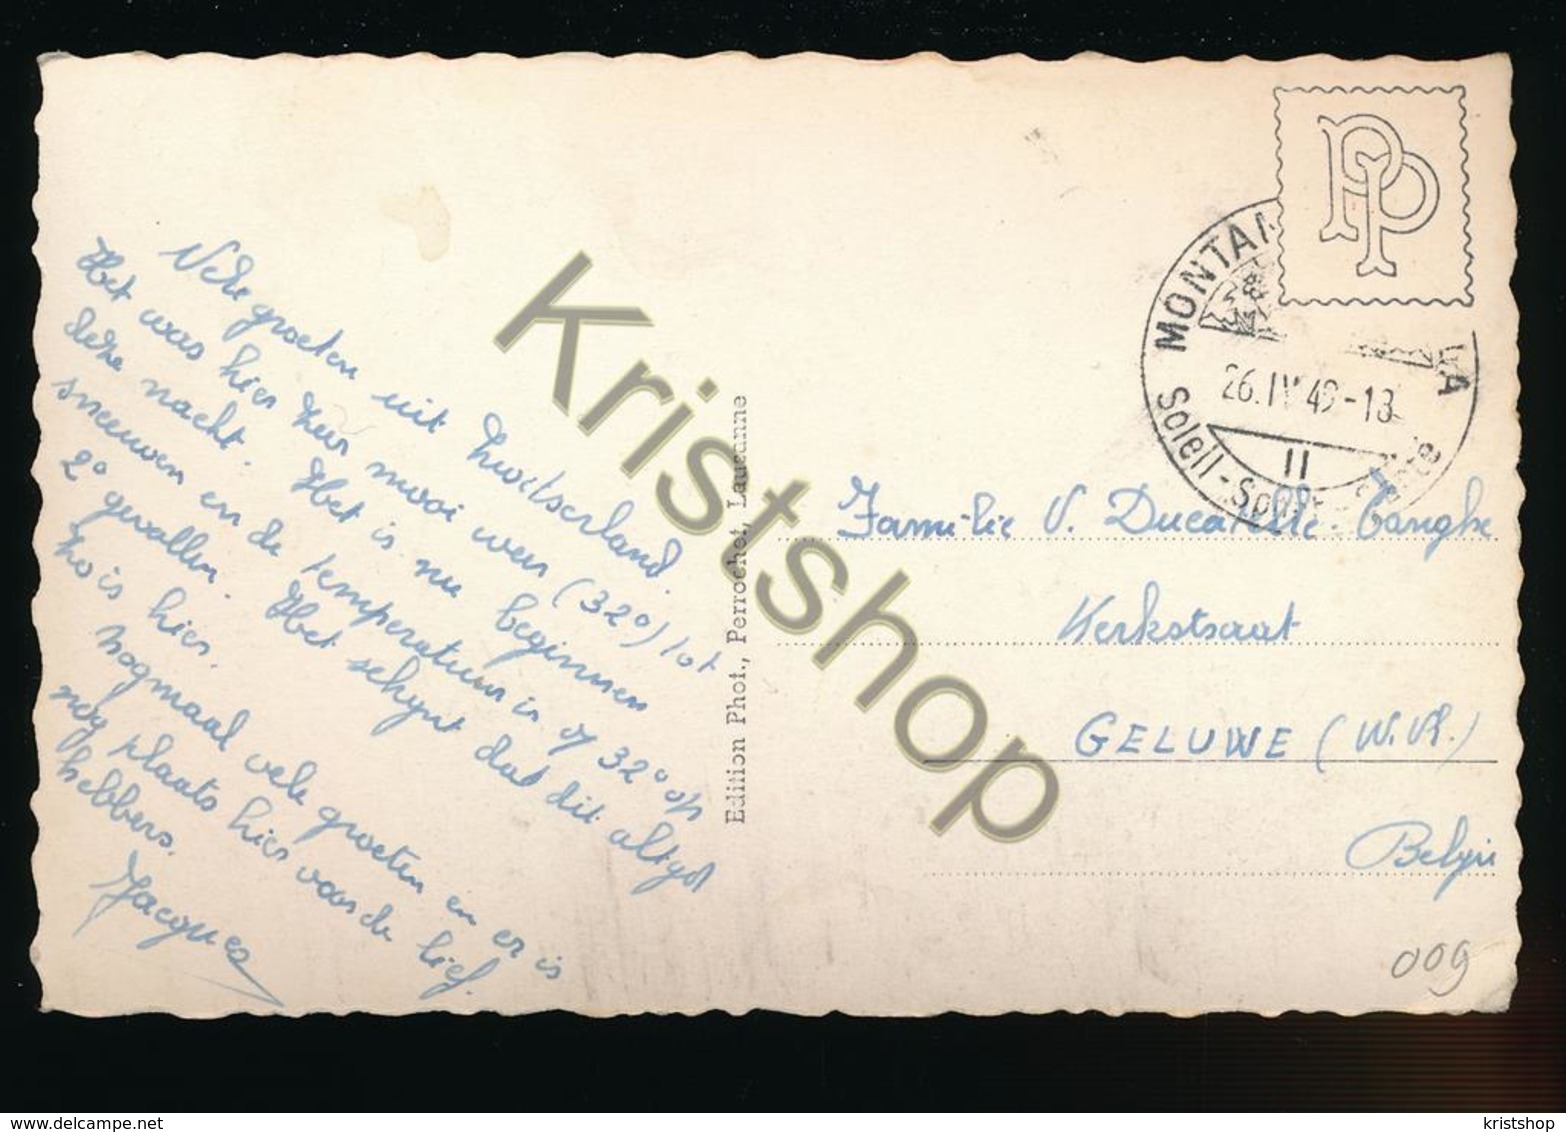 Vele groeten uit Zwitserland.
Het was hier zeer mooi weer (32°) tot
deze nacht. Het is nu beginnen
sneeuwen en de temperatuur is of 32° op
2° gevallen. Het schijnt dat dit altijd
zo is hier.
Nogmaal vele groeten en er is
nog plaats hier voor de lief
hebbers.
Jacques
Edition Phot., Perrochet, Lausanne
PP
MONTAN
LA
26.IV 49-18
II
Soleil - Sp
Familie V. Ducatelle-Tanghe
Kerkstraat
GELUWE (W.Vl.)
Belgie
009
Kristshop
delcampe.net
kristshop